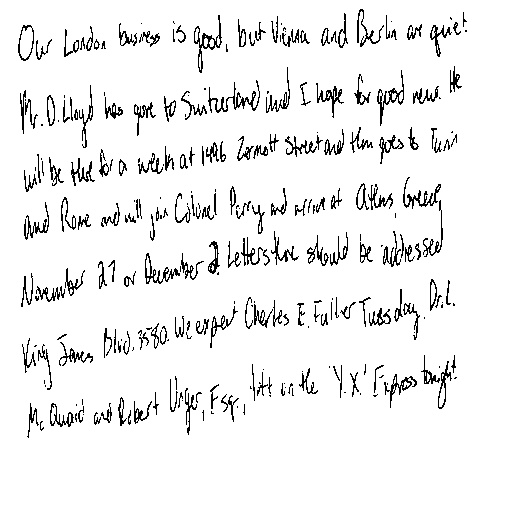 Our London business is good, but Vienna and Berlin are quiet.
Mr. D. Lloyd has gone to Switzerland and I hope for good news. He
will be there for a week at 1496 Zermott Street and then goes to Turin
and Rome and will join Colonel Parry and arrive at Athens, Greece,
November 27 or December 2. Letters there should be addressed
King James Blvd. 3580. We expect Charles E. Fuller Tuesday. Dr. L.
Mc Quaid and Robert Unger, Esq., left on the 'Y.X.' Express tonight.